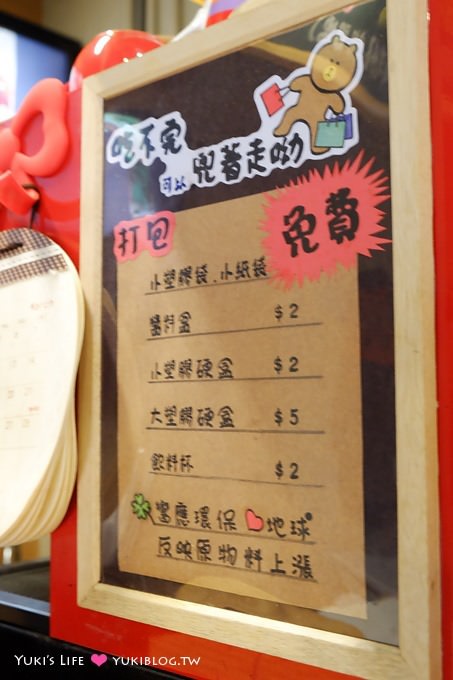 吃不完
可以 兜著走呦
打包
免費
小塑膠袋.小紙袋
醬料盒 $2
小塑膠硬盒 $2
大塑膠硬盒 $5
飲料杯 $2
響應環保 地球
反映原物料上漲
YUKI'S LIFE ♥ YUKIBLOG.TW